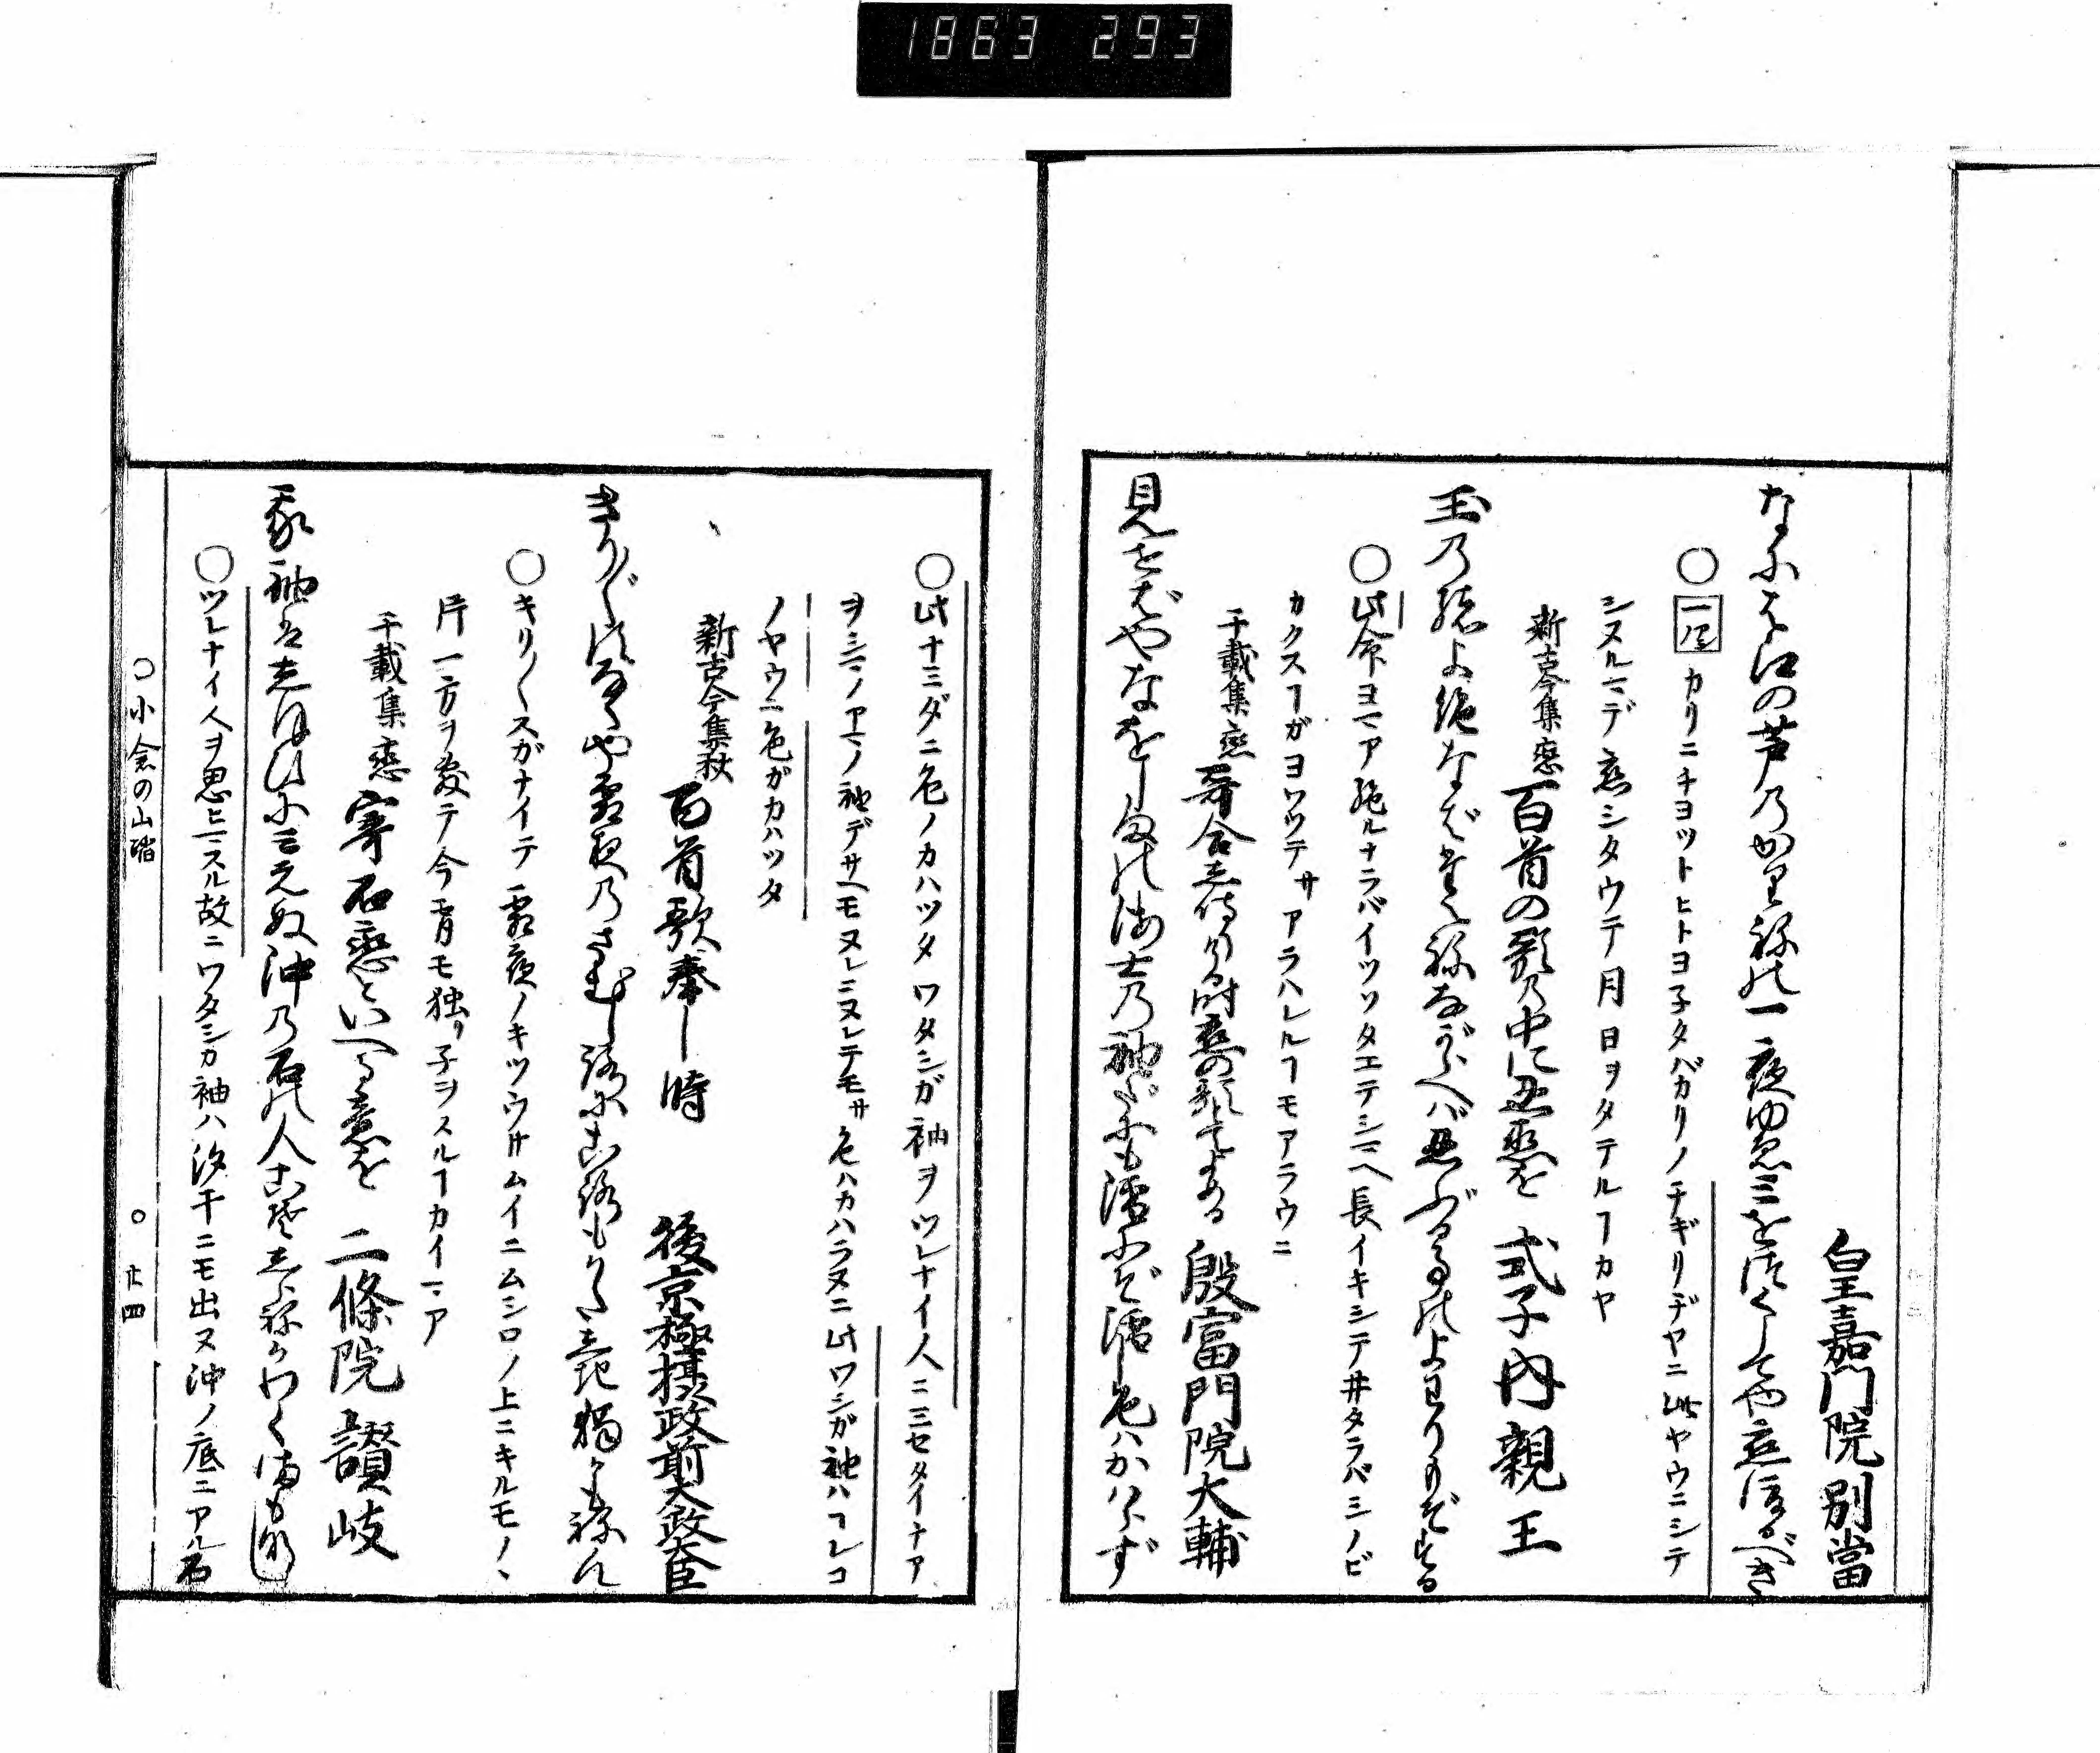 1863 293
皇嘉門院別當
なには江の芦乃かりねの一夜ゆゑミをつくしてや恋渡るべき
○一二三 カリニチヨツトヒトヨ子タバカリノチギリヂヤニ此ヤウニシテ
シヌルマデ恋シタウテ月日ヲタテルヿカヤ
新古今集恋 百首の歌乃中に忍恋を 式子内親王
玉乃緒よ絶なバたえねながらへバ忍ぶる事のよわりもぞする
○此命ヨマア絶ルナラバイツソタエテシマヘ長イキシテ井タラバシノビ
カクスヿガヨワツテサアラハレルヿモアラウニ
千載集恋 哥合し侍りける時恋の歌とてよめる 殷富門院大輔
見せバやなをしまの海士乃袖だにも濡にぞ濡し色ハかハらず
○此ナミダニ色ノカハツタワタシガ袖ヲツレナイ人ニミセタイナア
ヲシマノアマノ袖デサヘモヌレニヌレテモサ色ハカハラヌニ此ワシガ袖ハヿレコ
ノヤウニ色ガカハツタ
新古今集秋 百首歌奉し時 後京極摂政前太政大臣
きり〴〵すなくや霜夜乃さむしろにころもかたしき獨かも祢ん
○キリ〳〵スガナイテ霜夜ノキツウサムイニムシロノ上ニキルモノヽ
片一方ヲ敷テ今宵モ独リ子ヲスルヿカイマア
千載集恋 寄石恋といへる意を 二條院讃岐
我袖ハしほひにミえぬ沖乃石の人こそしらねかわく間もなし
○ツレナイ人ヲ思ヒマスル故ニワタシガ袖ハ汐干ニモ出ヌ沖ノ底ニアル石
○小倉の山踏 ○廿四